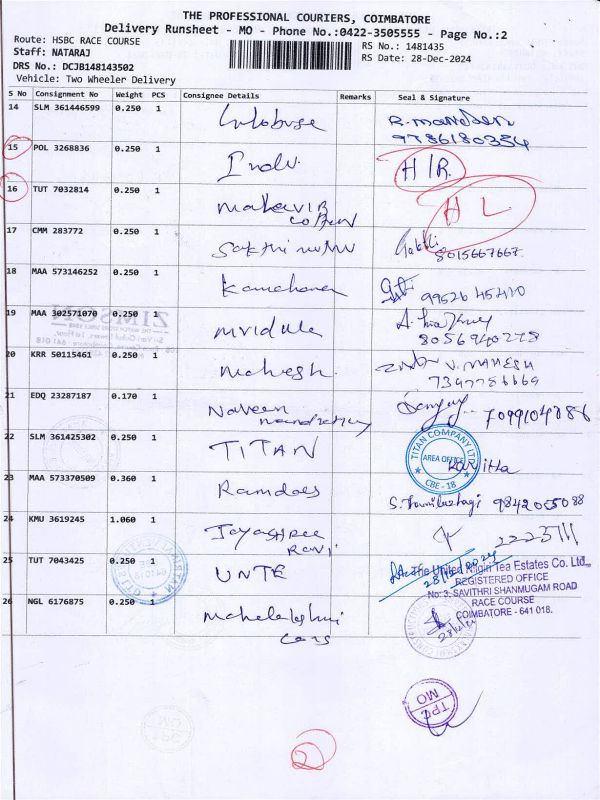 THE PROFESSIONAL COURIERS, COIMBATORE
Delivery Runsheet - MO - Phone No.:0422-3505555 - Page No.:2
Route: HSBC RACE COURSE
RS No.: 1481435
Staff: NATARAJ
RS Date: 28-Dec-2024
DRS No.: DCJB148143502
Vehicle: Two Wheeler Delivery
S No Consignment No Weight PCS Consignee Details Remarks Seal & Signature
14 SLM 361446599 0.250 1 R. Manikan
9786180354
15 POL 3268836 0.250 1 Indu H/R
16 TUT 7032814 0.250 1 Mahavir H L
cotton
17 CMM 283772 0.250 1 Sakthi Sakthi
8015667667
18 MAA 573146252 0.250 1 9952645410
19 MAA 302571070 0.250 1 Mridula
8056940278
ZIMSON
20 KRR 50115461 0.250 1 Mahesh V. MAHESH
7397786669
21 EDQ 23287187 0.170 1 Naveen 7099104086
22 SLM 361425302 0.250 1 TITAN Kavitha
TITAN COMPANY LTD
AREA OFFICE
CBE - 18
23 MAA 573370509 0.360 1 Ramdoes 9842005088
24 KMU 3619245 1.060 1 Jayashree 2223711
Ravi
25 TUT 7043425 0.250 1 UNTE
The United Nilgiri Tea Estates Co. Ltd.,
REGISTERED OFFICE
No: 3, SAVITHRI SHANMUGAM ROAD
RACE COURSE
COIMBATORE - 641 018.
26 NGL 6176875 0.250 1 Mahalakshmi
cars
TPC
MO
2